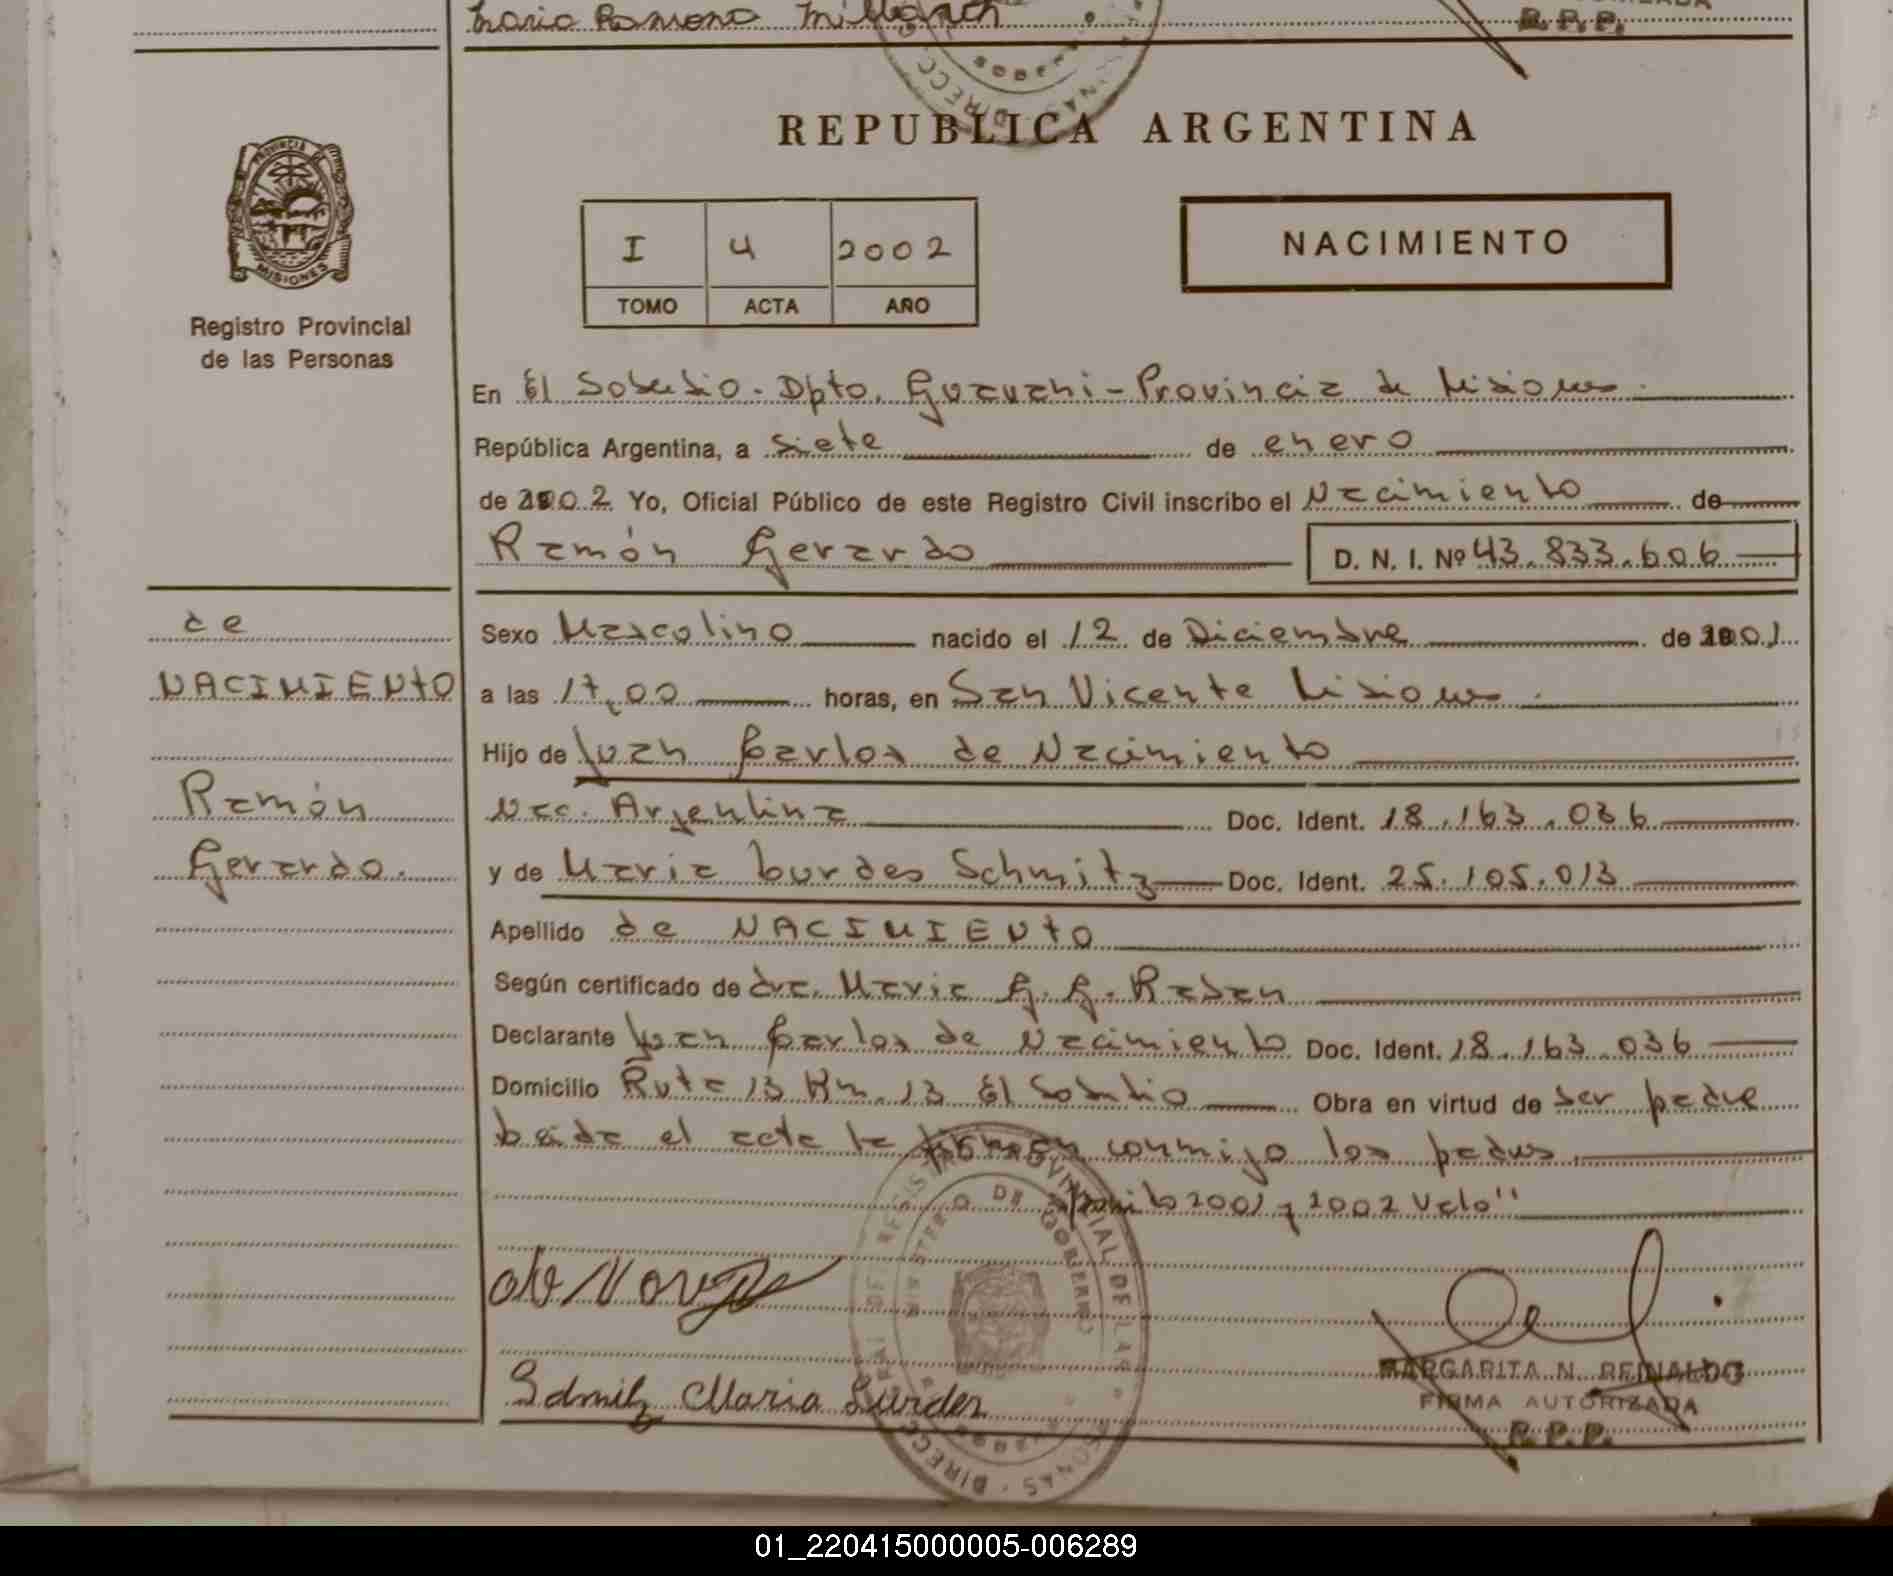 Maria Ramona
R.P.P.
REPUBLICA ARGENTINA
PROVINCIA DE
MISIONES
Registro Provincial
de las Personas
I 4 2002
TOMO ACTA AÑO
NACIMIENTO
En El Soberbio - Dpto. Guarani - Provincia de Misiones
República Argentina, a siete de enero
de 2002 Yo, Oficial Público de este Registro Civil inscribo el Nacimiento de
Ramón Gerardo D. N. I. Nº 43.833.606
de
NACIMIENtO
Ramón
Gerardo.
Sexo Masculino nacido el 12 de Diciembre de 2001
a las 17,00 horas, en San Vicente Misiones
Hijo de Juan Carlos de Nacimiento
Nac. Argentina Doc. Ident. 18.163.036
y de Maria Lurdes Schmitz Doc. Ident. 25.105.013
Apellido de NACIMIENtO
Según certificado de dra. Maria G. G. Rasen
Declarante Juan Carlos de Nacimiento Doc. Ident. 18.163.036
Domicilio Ruta 13 Km. 13 El Soberbio Obra en virtud de ser padre
Leida el acta la firman conmigo los padres
2001 y 2002 Vale"
Schmitz Maria Lurdes
MARGARITA N. REINALDO
FIRMA AUTORIZADA
R.P.P.
01_220415000005-006289